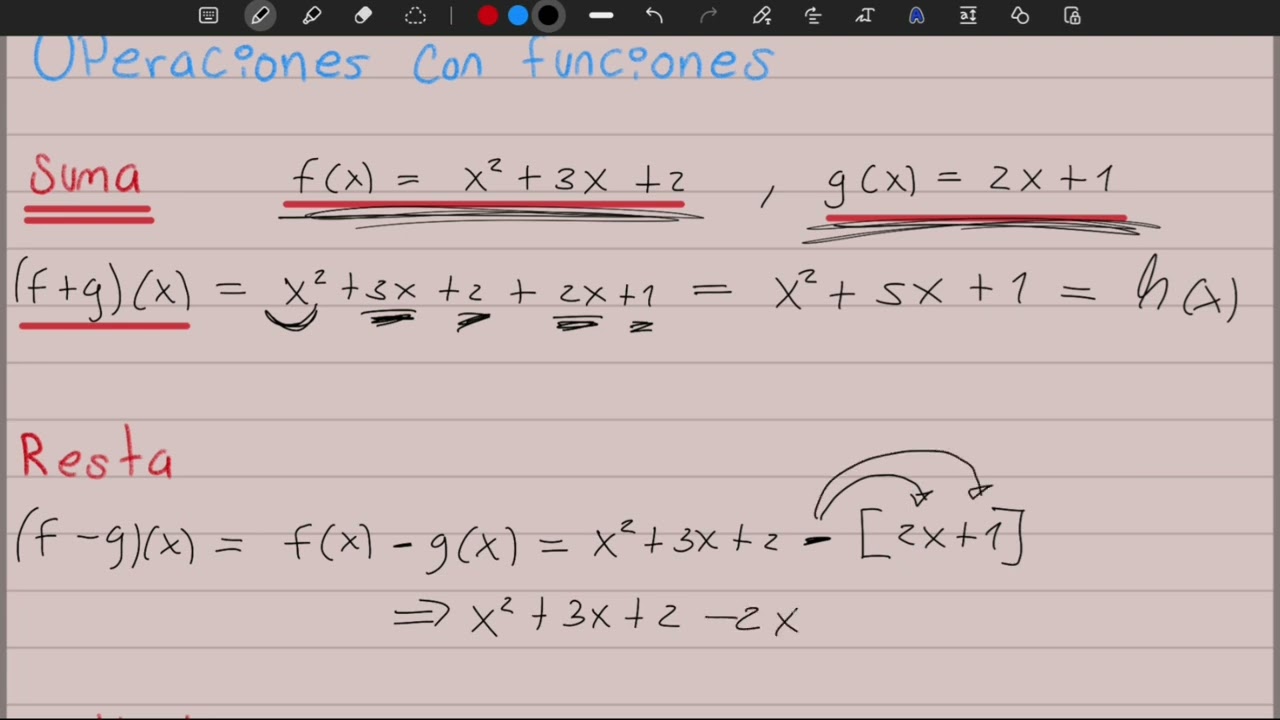 Operaciones con funciones
Suma f(x) = x² + 3x + 2 , g(x) = 2x + 1
(f+g)(x) = x² + 3x + 2 + 2x + 1 = x² + 5x + 1 = h(x)
Resta
(f - g)(x) = f(x) - g(x) = x² + 3x + 2 - [2x + 1]
⇒ x² + 3x + 2 - 2x